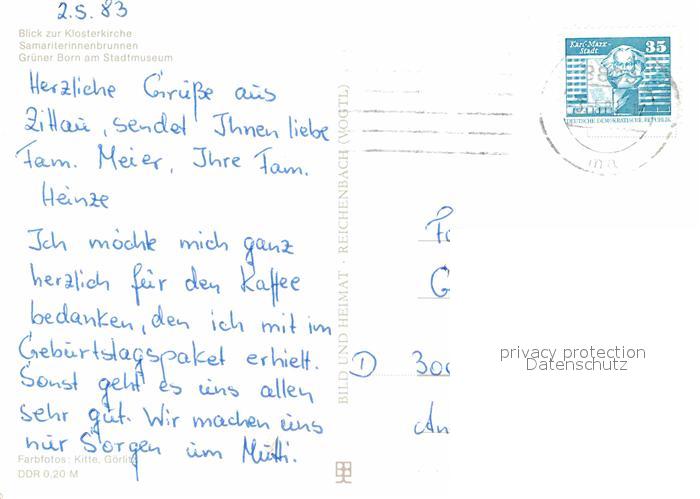 2.5.83
Blick zur Klosterkirche
Samariterinnenbrunnen
Grüner Born am Stadtmuseum
Herzliche Grüße aus
Zittau, sendet Ihnen liebe
Fam. Meier, Ihre Fam.
Heinze
Ich möchte mich ganz
herzlich für den Kaffee
bedanken, den ich mit im
Geburtstagspaket erhielt.
Sonst geht es uns allen
sehr gut. Wir machen uns
nur Sorgen um Mutti.
Farbfotos: Kitte, Görlitz
DDR 0,20 M
BILD UND HEIMAT · REICHENBACH (VOGTL)
Karl-Marx-
Stadt
35
DEUTSCHE DEMOKRATISCHE REPUBLIK
D 300
An
privacy protection
Datenschutz